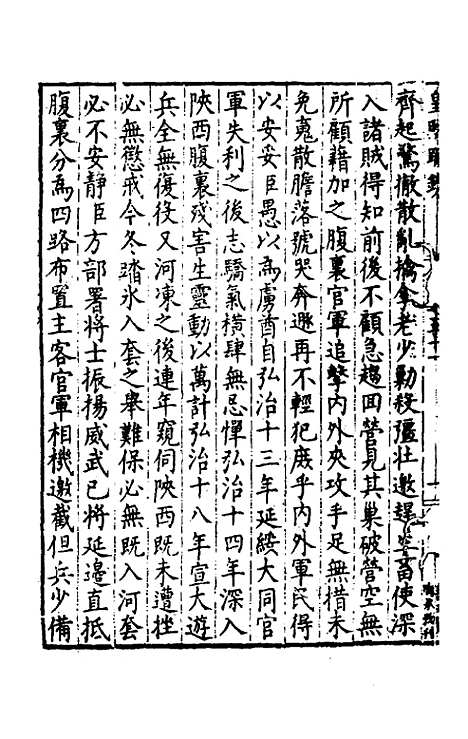 齊起驚徹散亂擒拿老少勦殺彊壯邀趕孳畜使深
入諸賊得知前後不顧急趨回營見其巢破營空無
所顧藉加之腹裏官軍追擊內外夾攻手足無措未
免䰟散膽落號哭奔遯再不輕犯庻乎內外軍民得
以安妥臣愚以爲虜酋自弘治十三年延綏大同官
軍失利之後志驕氣橫肆無忌憚弘治十四年深入
陝西腹裏殘害生靈動以萬計弘治十八年宣大遊
兵全無復役又河凍之後連年窺伺陝西既未遭挫
必無懲戒今冬踏氷入套之舉難保必無既入河套
必不安静臣方部署將士振揚威武已將延邊直抵
腹裏分爲四路布置主客官軍相機邀截但兵少備